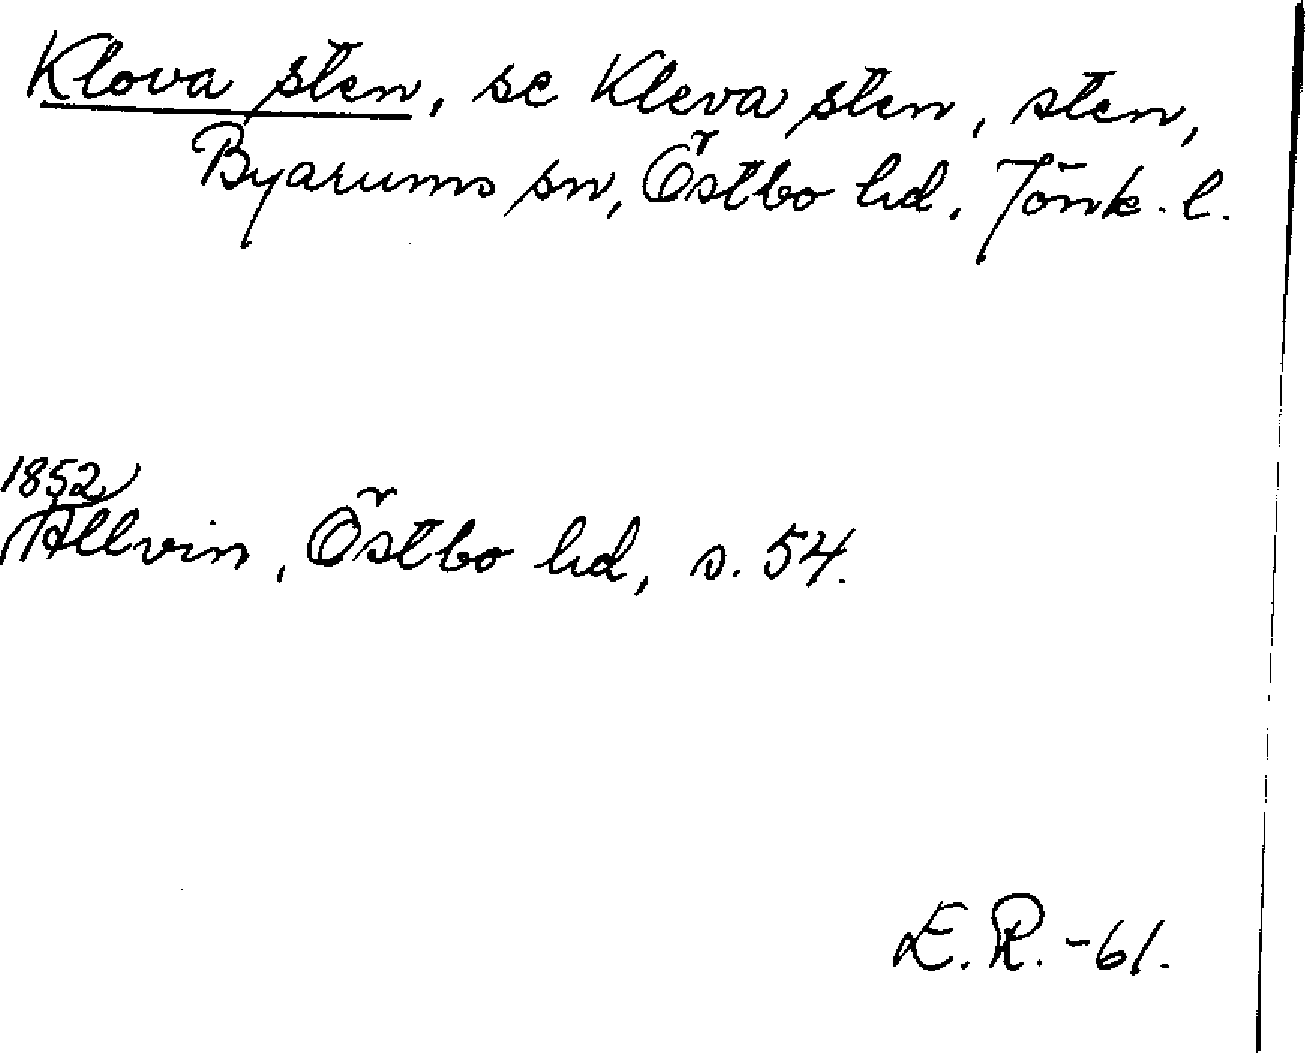 Klova sten, se Kleva sten, sten,
Byarums sn, Östbo hd, Jönk. l.
1852
Allvin, Östbo hd, s. 54.
E.R. -61.